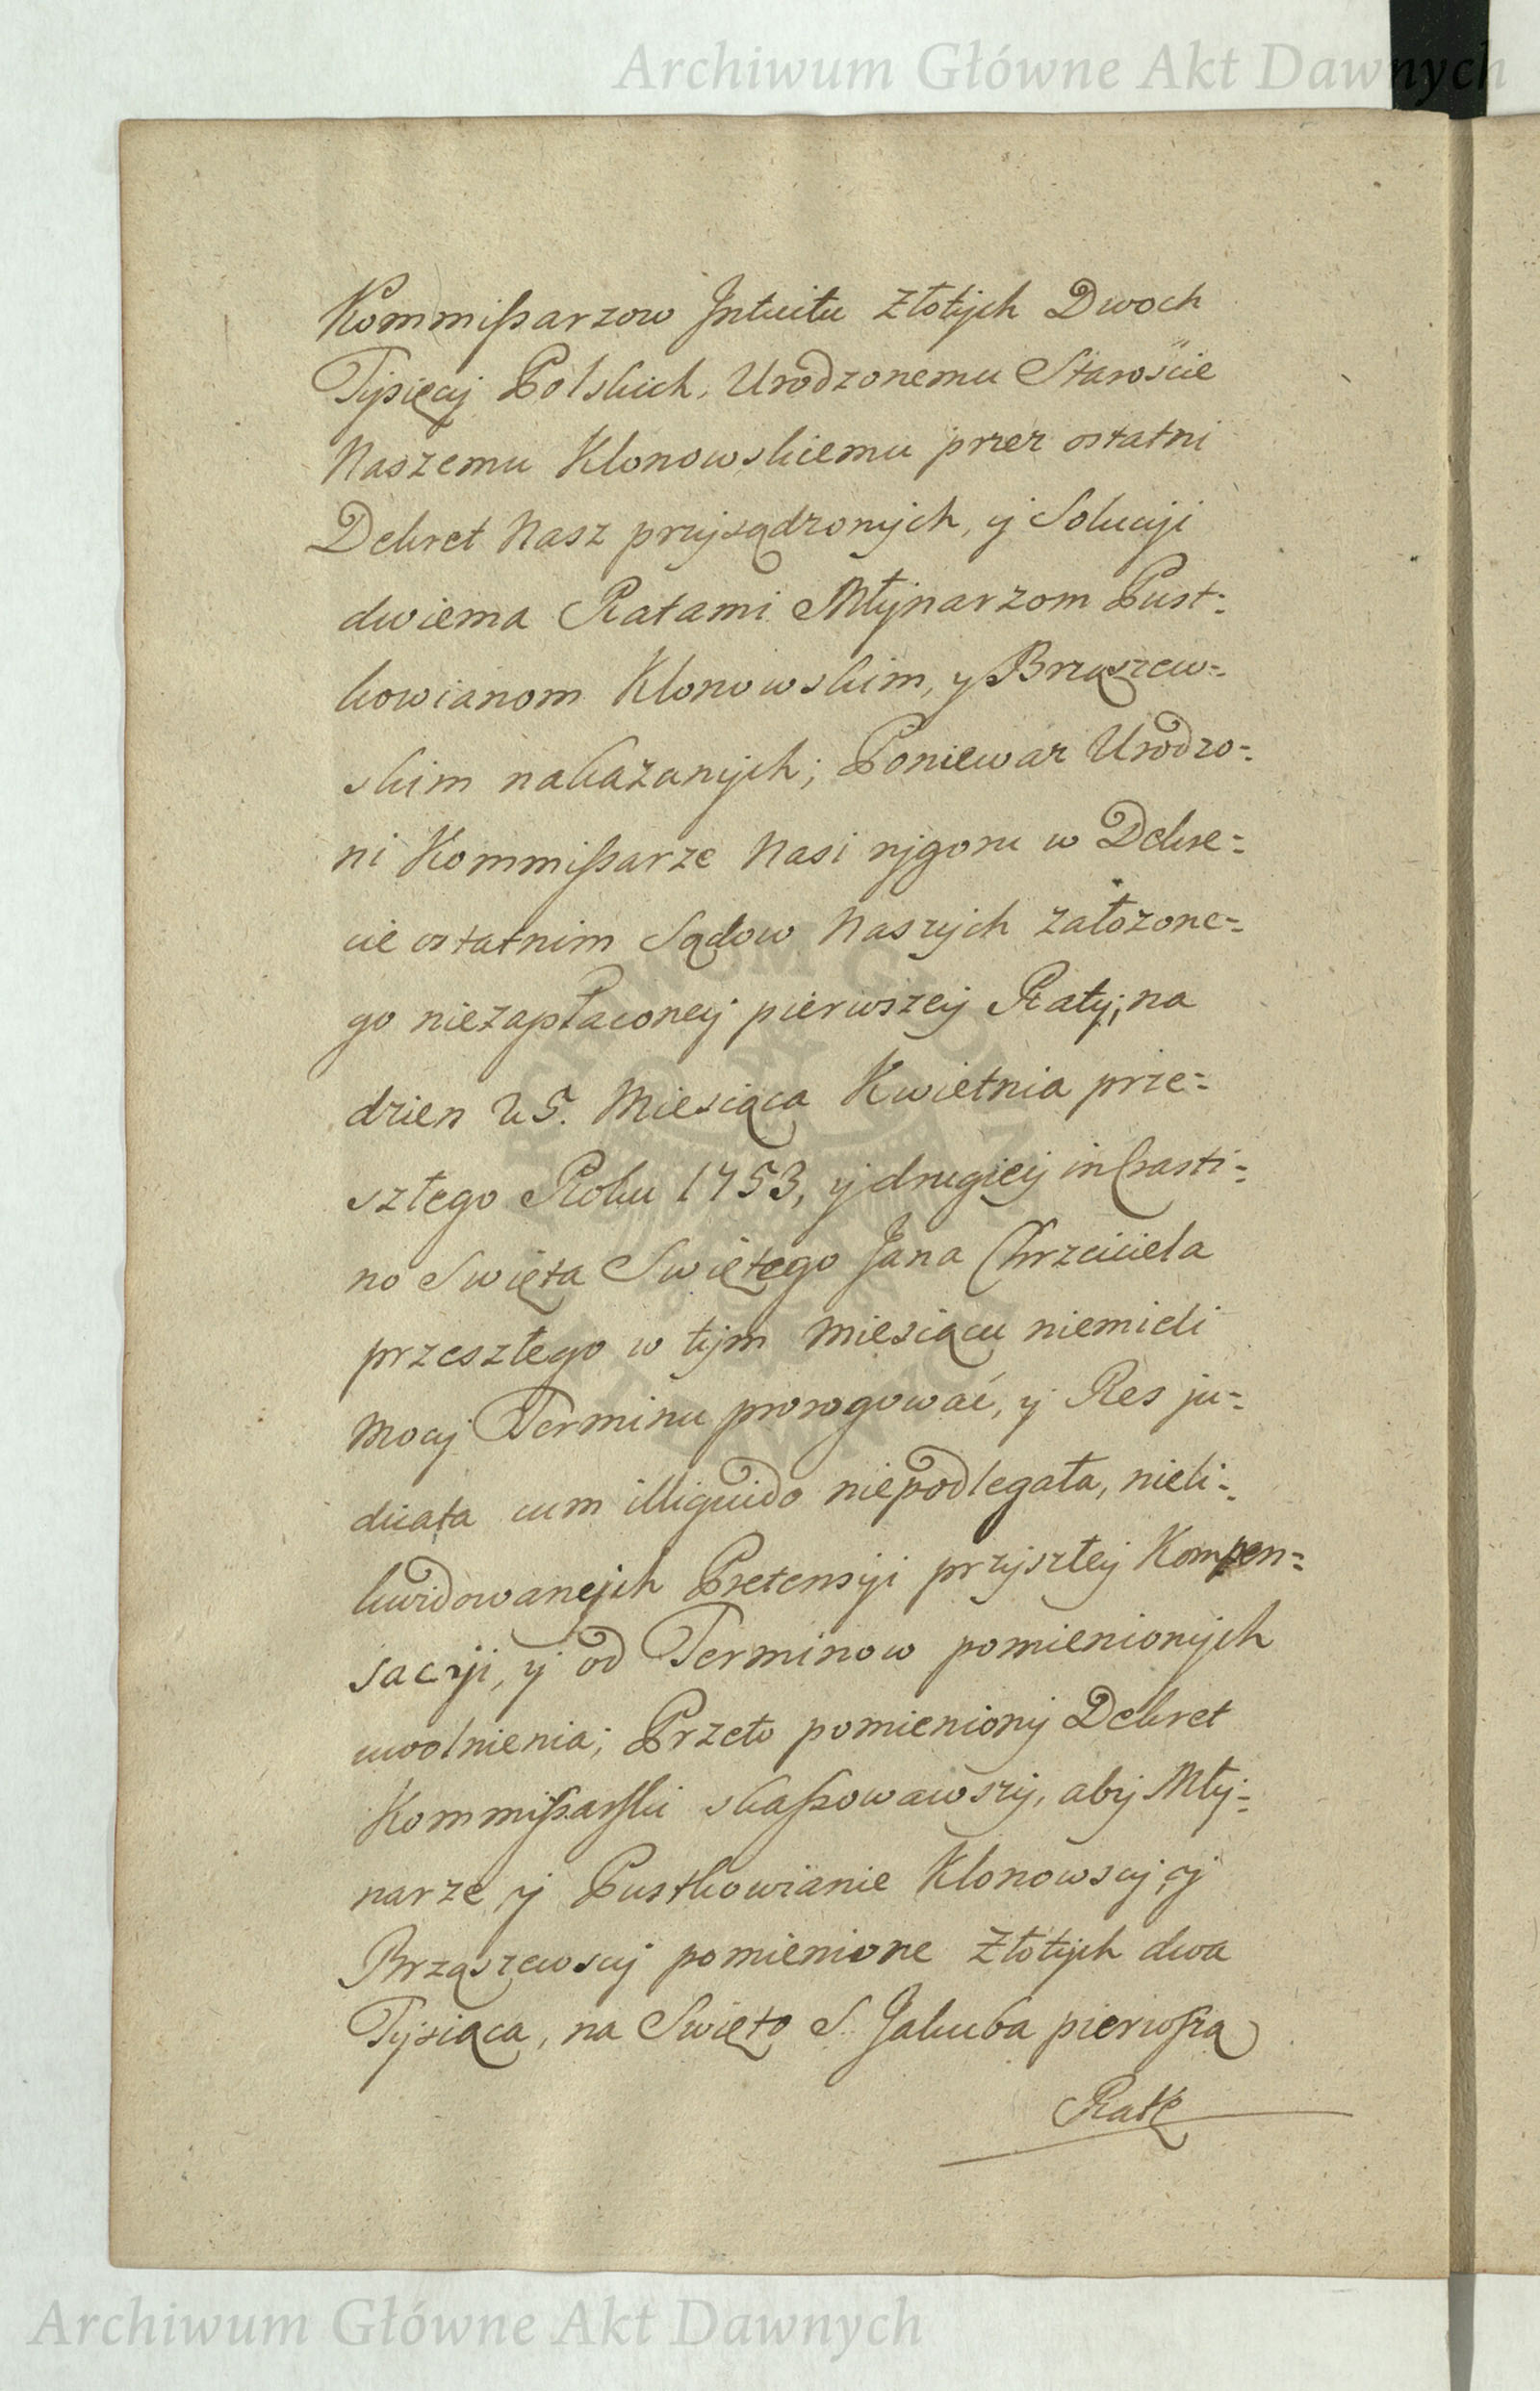 Archiwum Główne Akt Dawnych
Kommißarzow Jntuitu Złotych Dwoch
Tysięcy Polskich, Urodzonemu Staroście
Naszemu Klonowskiemu przez ostatni
Dekret Nasz przysądzonych, y Solucyi
dwiema Ratami Młynarzom Pust=
kowianom Klonowskim, y Brząszew=
skim nakazanych; Ponieważ Urodzo=
ni Kommißarze Nasi rygoru w Dekre=
cie ostatnim Sądow Naszych założone=
go niezapłaconey pierwszey Raty, na
dzien 25. Miesiąca Kwietnia prze=
szłego Roku 1753, y drugiey in Crasti=
no Swięta Swiętego Jana Chrzciciela
przeszłego w tym Miesiącu niemieli
Mocy Terminu prorogować, y Res ju=
dicata cum illiquido niepodlegała, nieli=
kwidowanych Pretensyi przyszłey Kompen=
sacyi, y od Terminow pomienionych
uwolnienia; Przeto pomieniony Dekret
Kommißarski skaßowawszy, aby Mły=
narze y Pustkowianie Klonowscy, y
Brząszewscy pomienione Złotych dwa
Tysiąca, na Swięto S. Jakuba pierwszą
Ratę
Archiwum Główne Akt Dawnych